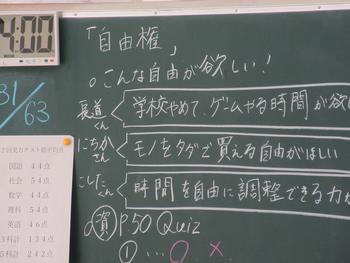 4:00
「自由権」
○こんな自由が欲しい!
31/63
長道くん 学校やめて、ゲームやる時間が欲
にちかさん モノをタダで買える自由がほしい
こしたくん 時間を自由に調整できる力が
資 P.50 Quiz
① … ○ ×
国語 44点
社会 54点
数学 44点
理科 54点
英語 46点
3科計 134点
5科計 242点